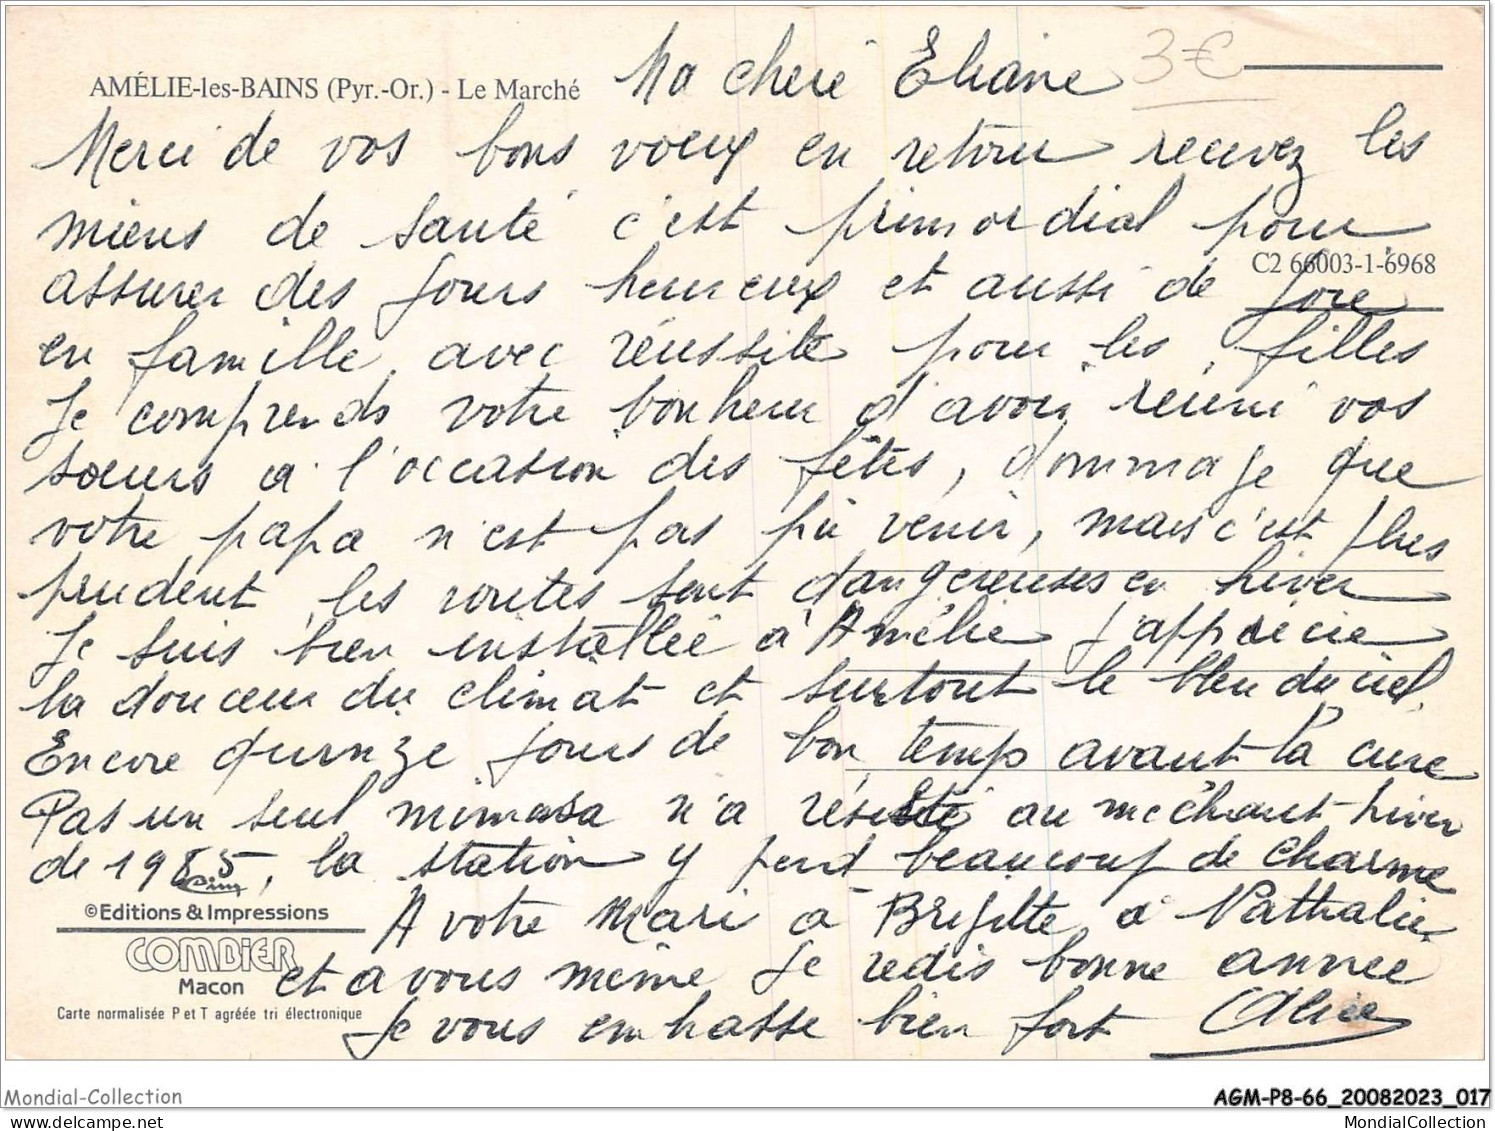 AMÉLIE-les-BAINS (Pyr.-Or.) - Le Marché
Ma chere Eliane
3€
Merci de vos bons voeux en retour recevez les
miens de santé c'est primordial pour
C2 66003-1-6968
assurer des jours heureux et aussi de joie
en famille avec réussite pour les filles
Je comprends votre bonheur d'avoir réuni vos
soeurs a l'occasion des fêtes, dommage que
votre papa n'est pas pu venir, mais c'est plus
prudent, les routes sont dangereuses en hiver
Je suis bien installée à Amélie j'apprécie
la douceur du climat et surtout le bleu du ciel.
Encore quinze jours de bon temps avant la cure
Pas un seul mimosa n'a résisté au méchant hiver
de 1985, la station y perd beaucoup de charme
©Editions & Impressions
A votre mari à Brigitte à Nathalie
COMBIER
et a vous même je redis bonne année
Macon
Carte normalisée P et T agréée tri électronique
Je vous embrasse bien fort Alice
Mondial-Collection
AGM-P8-66_20082023_017
https://www.delcampe.net/fr/collections/store/Mondial-Collection
MondialCollection